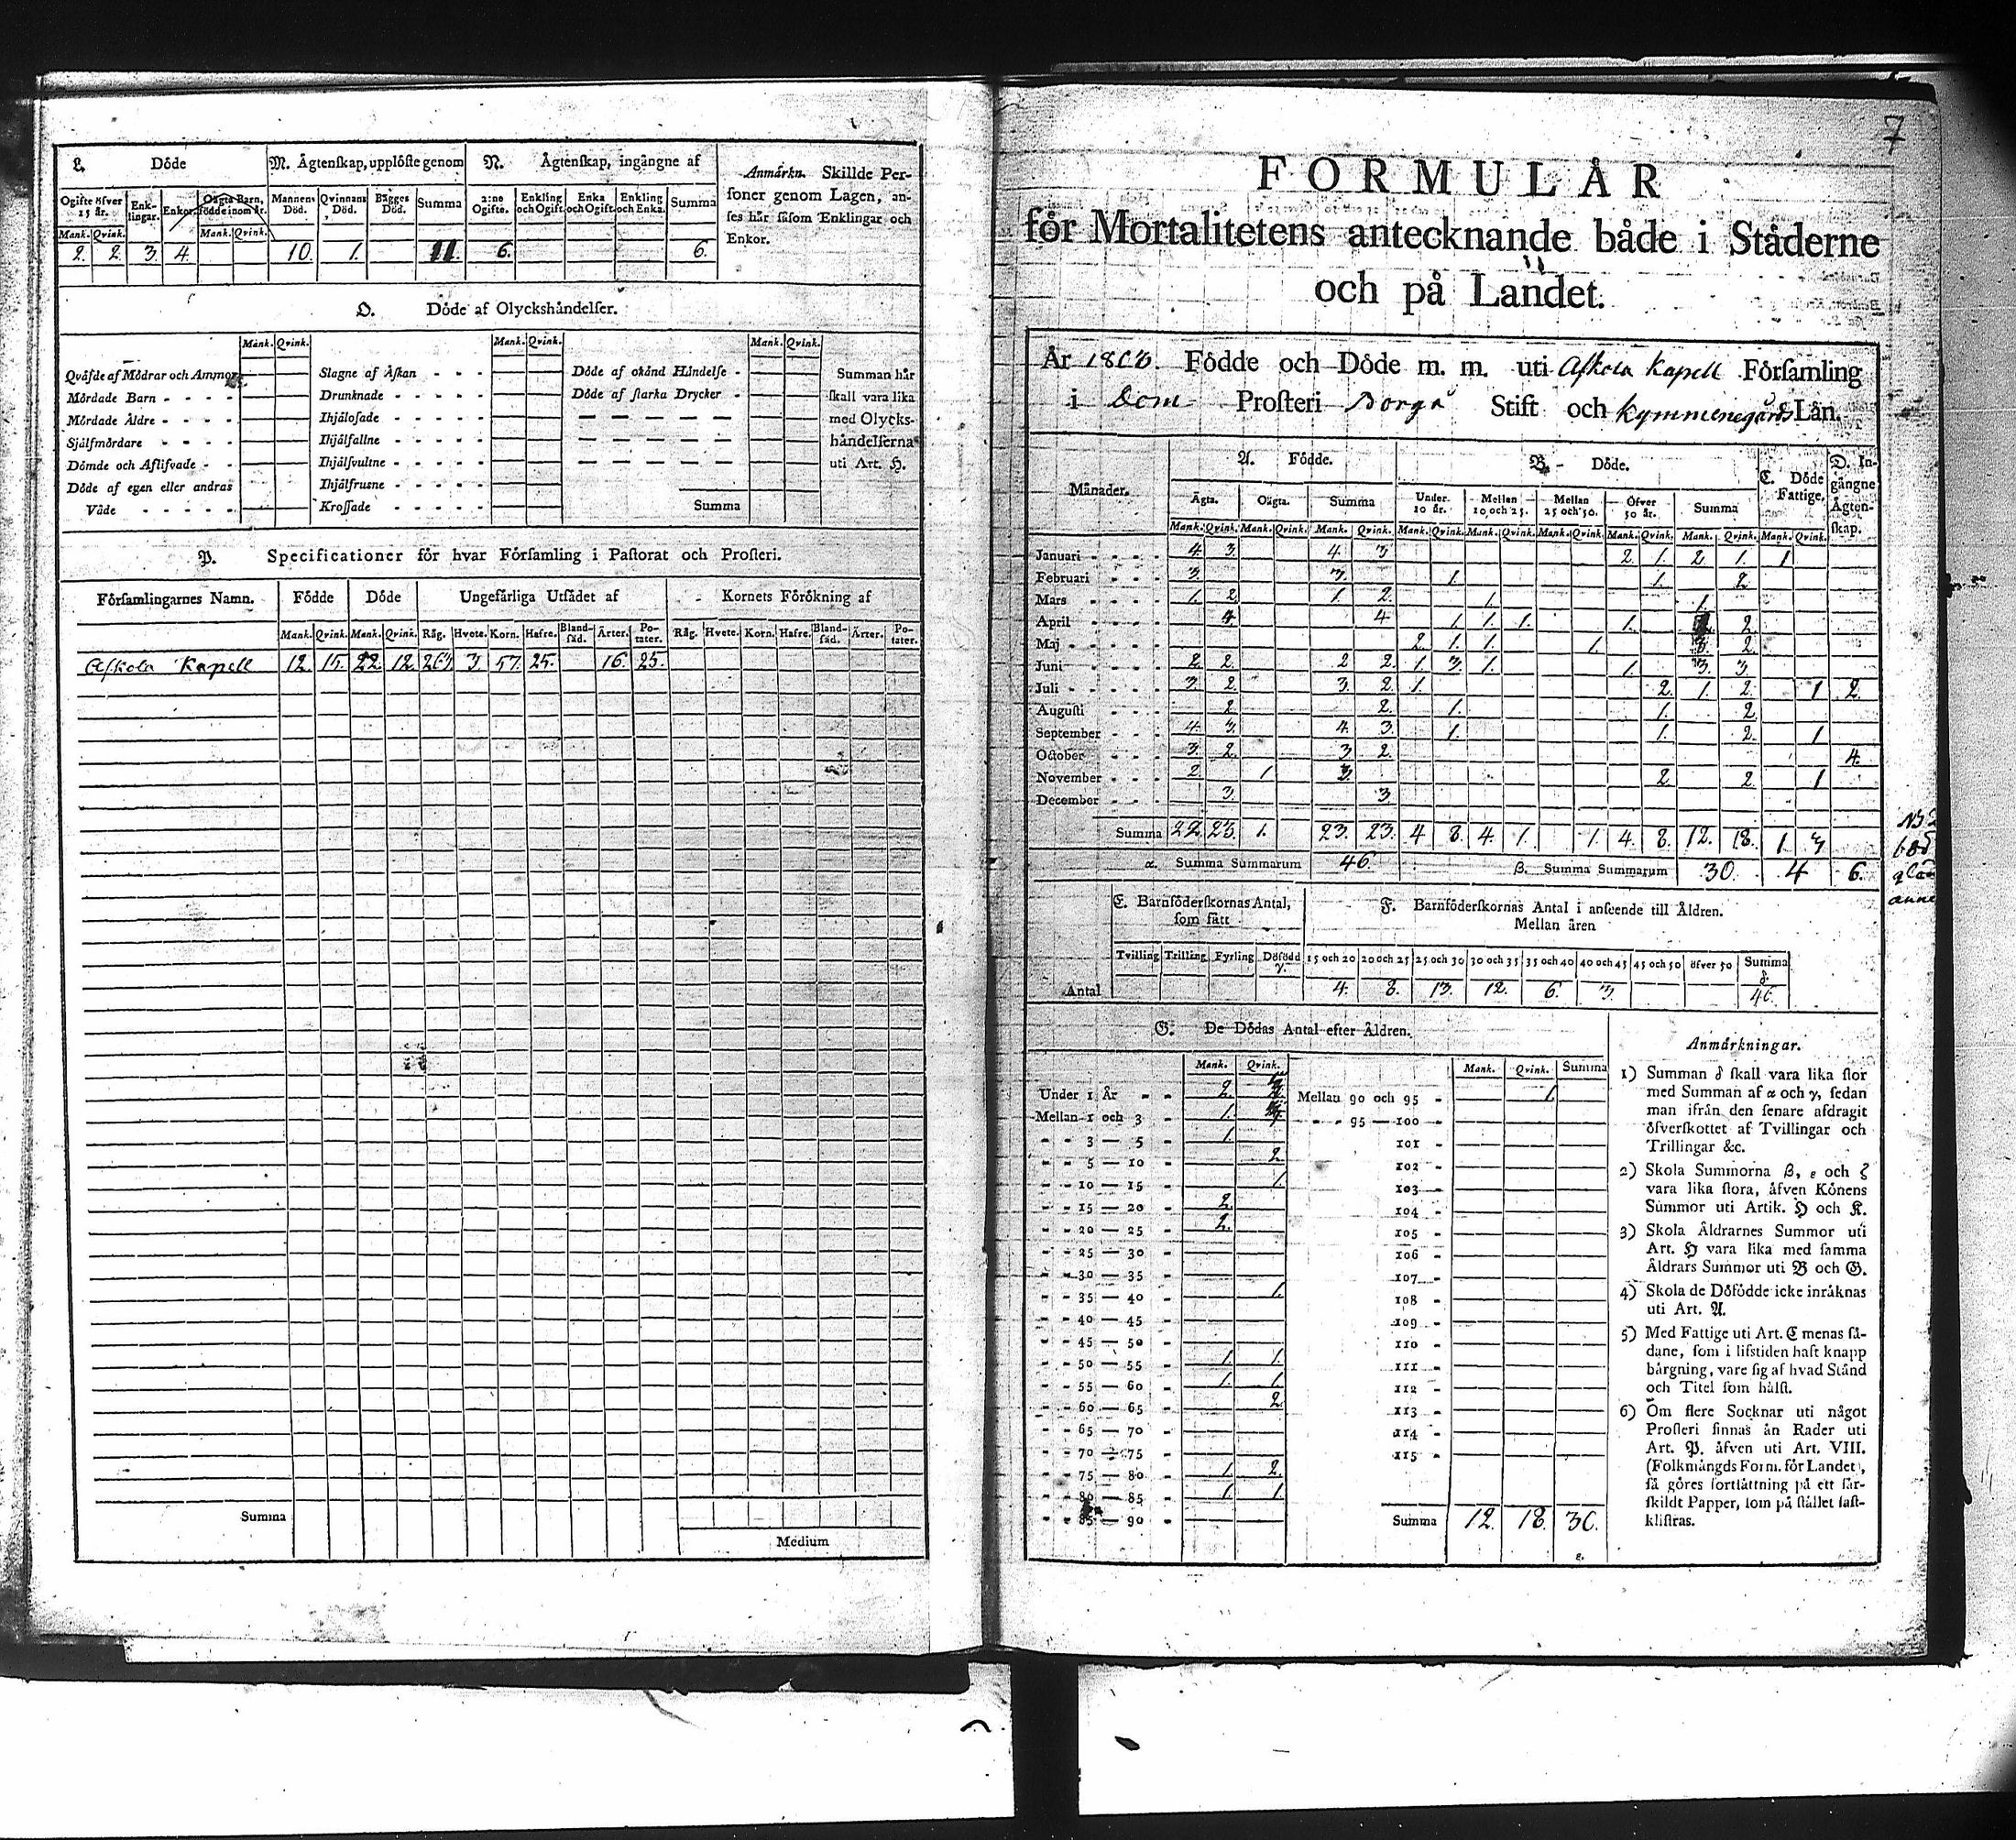 L. Döde
M. Ägtenskap, upplöste genom
N. Ägtenskap, ingångne af
Anmärkn. Skillde Personer genom Lagen, anses här såsom Enklingar och Enkor.
Ogifte öfver 15 år. Enklingar. Enkor. Oägta Barn, födde inom år. Mannens Död. Qvinnans Död. Bägges Död. Summa 2:ne Ogifte. Enkling och Ogift. Enka och Ogift. Enkling och Enka. Summa
Mank. Qvink. Mank. Qvink.
2. 2. 3. 4. 10. 1. 11. 6. 6.
O. Döde af Olyckshändelser.
Mank. Qvink. Mank. Qvink. Mank. Qvink.
Qväfde af Mödrar och Ammor Slagne af Åskan - - - Döde af okänd Händelse - Summan här
Mördade Barn - - - - Drunknade - - - - - Döde af starka Drycker - skall vara lika
Mördade Äldre - - - - Ihjälosade - - - - - med Olycks-
Självmördare - - - - Ihjälfallne - - - - - händelserna
Dömde och Aflifvade - - Ihjälsvultne - - - - - uti Art. H.
Döde af egen eller andras Ihjälfrusne - - - - -
Våde - - - - - Krossade - - - - - Summa
P. Specificationer för hvar Församling i Pastorat och Prosteri.
Församlingarnes Namn. Födde Döde Ungefärliga Utsädet af Kornets Förökning af
Mank. Qvink. Mank. Qvink. Råg. Hvete. Korn. Hafre. Blandsäd. Ärter. Potater. Råg. Hvete. Korn. Hafre. Blandsäd. Ärter. Potater.
Askola Kapell 12. 15. 22. 12. 3. 57. 25. 16. 25.
Summa
Medium
7
FORMULÄR
för Mortalitetens antecknande både i Städerne
och på Landet.
År Födde och Döde m. m. uti Askola Kapell Församling
i Dom Prosteri Borgå Stift och Kymmenegårds Län.
Månader. A. Födde. B. Döde. C. Döde Fattige. D. Ingångne Ägtenskap.
Ägta. Oägta. Summa Under 10 år. Mellan 10 och 25. Mellan 25 och 50. Öfver 50 år. Summa
Mank. Qvink. Mank. Qvink. Mank. Qvink. Mank. Qvink. Mank. Qvink. Mank. Qvink. Mank. Qvink. Mank. Qvink. Mank. Qvink.
Januari - - - 4. 3. 4. 3 2. 1. 2. 1. 1
Februari - - - 3. 3. 1. 1. 2
Mars - - - - 1. 2. 1. 2. 1. 1.
April - - - - 4 4 1. 1. 1. 1. 2.
Maj - - - - 2. 1. 1. 1. 3. 2.
Juni - - - - 2. 2. 2 2. 1. 3. 1. 1. 3. 3.
Juli - - - - - 3. 2. 3. 2. 1. 2. 1. 2. 1 2.
Augusti - - - 2. 2. 1. 1. 2.
September - - - 4. 3. 4. 3. 1. 1. 2. 1
October - - - 3. 2. 3 2. 4.
November - - - 2. 1 3. 2. 2. 1
December - - - 3. 3.
Summa 22. 23. 1. 23. 23. 4 8. 4. 1. 1. 4. 8. 12. 18. 1. 3
α. Summa Summarum 46. β. Summa Summarum 30. 4 6.
E. Barnföderskornas Antal, som fått
F. Barnföderskornas Antal i anseende till Åldren.
Mellan åren
Tvilling Trilling Fyrling Dödfödd γ. 15 och 20 20 och 25 25 och 30 30 och 35 35 och 40 40 och 45 45 och 50 öfver 50 Summa δ
Antal 4. 8. 13. 12. 6. 3. 46.
G. De Dödas Antal efter Åldren.
Mank. Qvink. Mank. Qvink. Summa
Under 1 År - - 2. Mellan 90 och 95 - 1.
Mellan 1 och 3 - 1. - - - 95 — 100 -
- - 3 — 5 - 1. 101 -
- - 5 — 10 - 2. 102 -
- - 10 — 15 - 1. 103 -
- - 15 — 20 - 2. 104 -
- - 20 — 25 - 2. 105 -
- - 25 — 30 - 106 -
- - 30 — 35 - 107 -
- - 35 — 40 - 1. 108 -
- - 40 — 45 - 109 -
- - 45 — 50 - 110 -
- - 50 — 55 - 1. 1. 111 -
- - 55 — 60 - 1. 1. 112 -
- - 60 — 65 - 2. 113 -
- - 65 — 70 - 114 -
- - 70 — 75 - 115 -
- - 75 — 80 - 1. 2.
- - 80 — 85 - 1. 1.
- - 85 — 90 - Summa 12. 18. 30.
ε.
Anmärkningar.
1) Summan δ skall vara lika stor
med Summan af α och γ, sedan
man ifrån den senare afdragit
öfverskottet af Tvillingar och
Trillingar &c.
2) Skola Summorna β, ε och ζ
vara lika stora, äfven Könens
Summor uti Artik. H och K.
3) Skola Åldrarnes Summor uti
Art. H vara lika med samma
Åldrars Summor uti B och G.
4) Skola de Dödfödde icke inräknas
uti Art. A.
5) Med Fattige uti Art. C menas så-
dane, som i lifstiden haft knapp
bärgning, vare sig af hvad Stånd
och Titel som hälst.
6) Om flere Socknar uti något
Prosteri finnas än Rader uti
Art. P. äfven uti Art. VIII.
(Folkmängds Form. för Landet),
så göres fortsättning på ett sär-
skildt Papper, som på stället fast-
klistras.